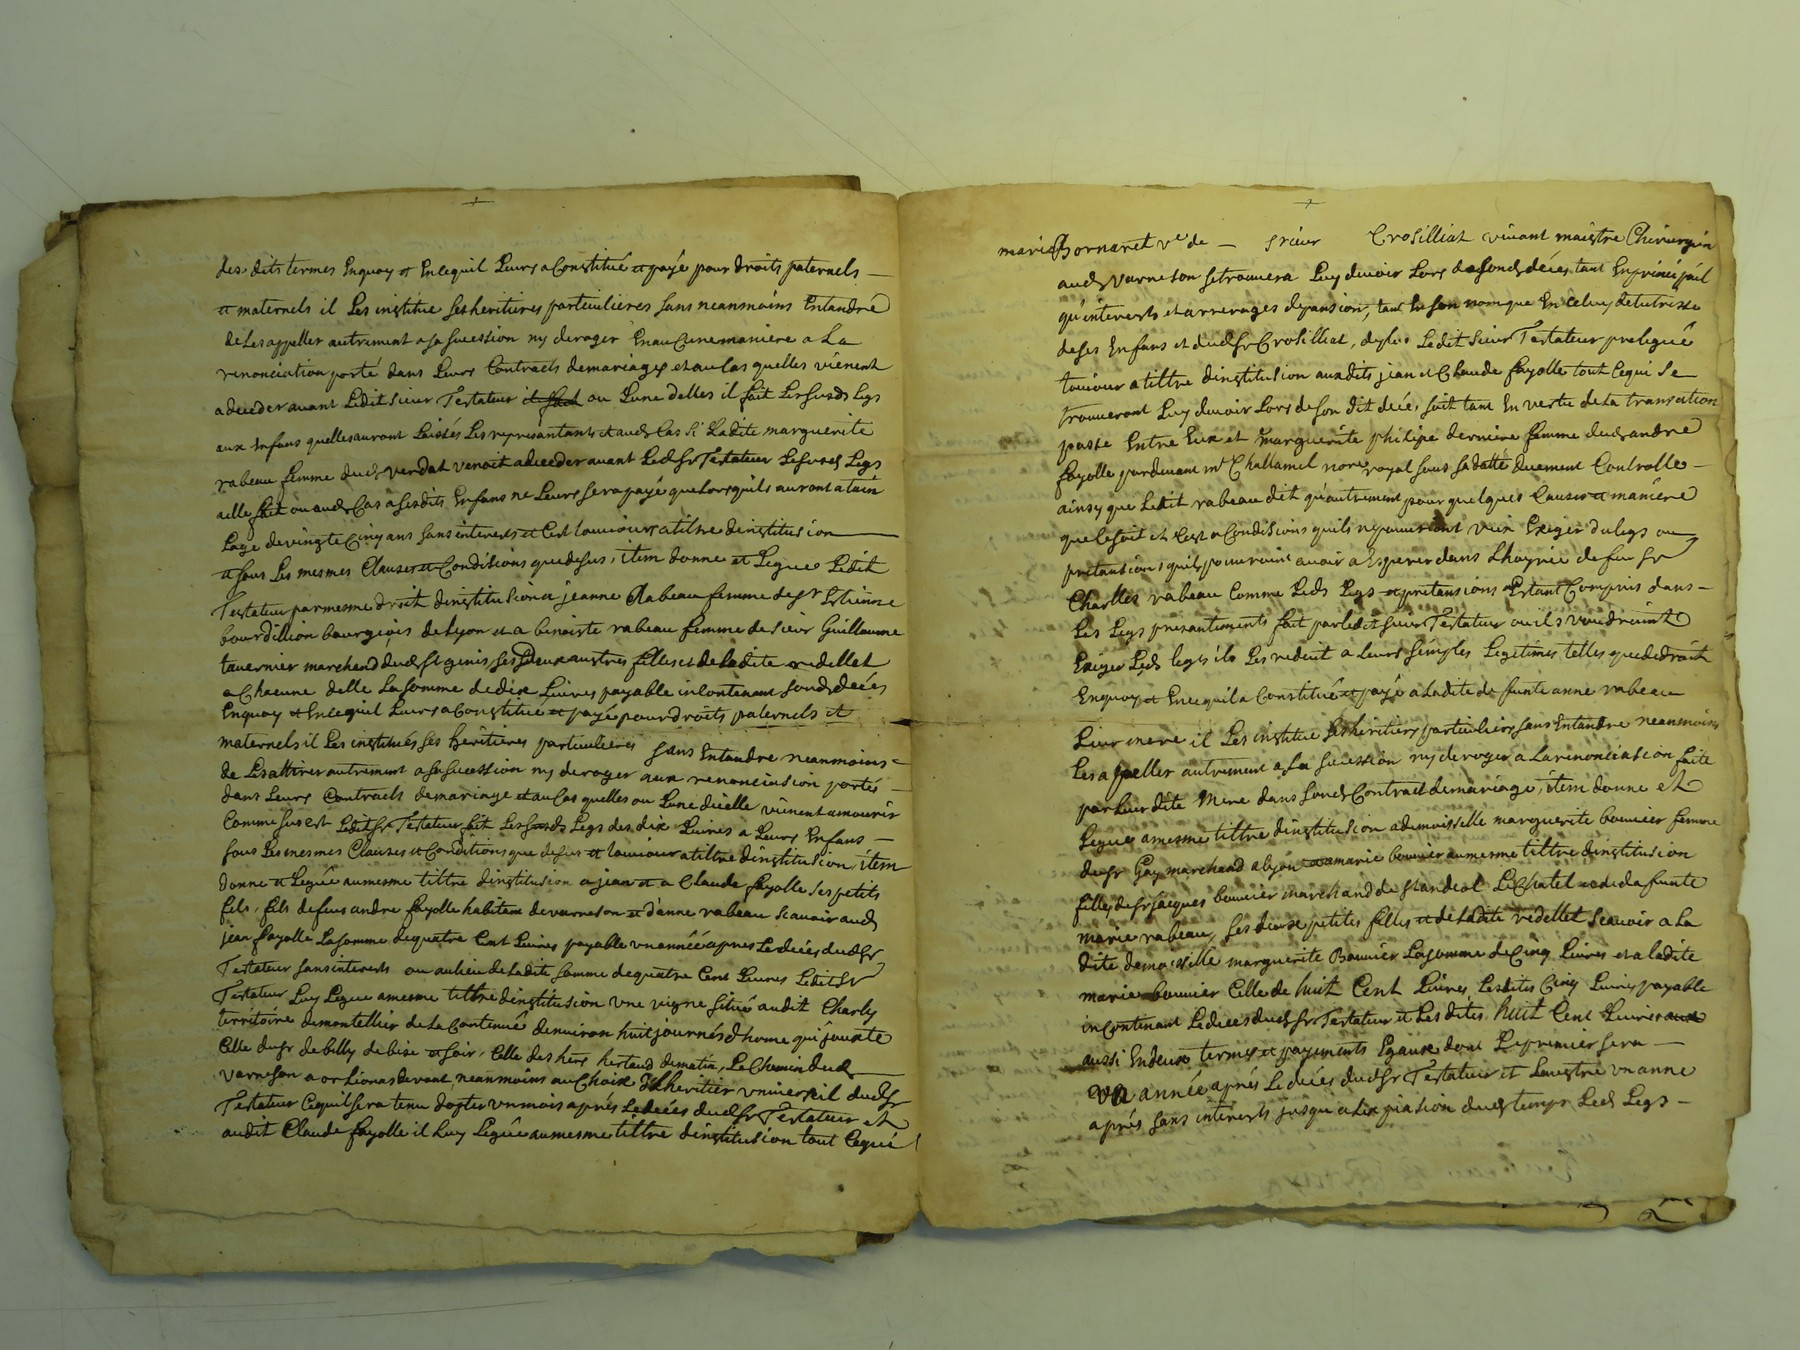 des dits termes Enquoy et Enlequil Leurs a Constitué et payé pour droits paternels
et maternels il Les institue ses heritieres particulieres sans neansmoins Entandre
de Les appeller autrement a sa sucession ny deroger En auCune maniere a La
renonciation porté dans Leurs Contracts demariages et au Cas quelles viénent
a deceder avant Ledit sieur Testateur ou Lune delles il fait Les susds Legs
aux Enfans quelles auront Laissés Les representants et aud Cas si Ladite marguerite
rabeau femme dud verdat venoit a deceder avant Led Sr Testateur Le susd Legs
a elle fait ou aud Cas a sesdits Enfans ne Leurs sera payé que Lors quils auront atain
Lage de vingt Cinq ans sans interests et Cest toujours a tiltre dinstitusion
et sous Les mesmes Clauses et Conditions que desus, item donne et Legue Ledit
Testateur par mesme droit dinstitusion a jeanne Rabeau femme de Sr Estienne
bourdillion bourgeois de Lyon et a benoiste rabeau femme de sieur Guillaume
tavernier marchand dud St genis ses deux austres filles et de Ladite redellet
a Chacune delle La somme de dix Livres payable inContenant sond deces
Enquoy et Enlequil Leurs a Constitué et payé pour droits paternels et
maternels il Les institués ses heritieres particulieres sans Entandre neanmoins
de Les attirer autrement a sa sucession ny deroger aux renonciasion portés
dans Leurs Contracts demariage et au Cas quelles ou Lune dicelle vinent a mourir
Comme sus est Ledit Sr Testateur fait Les susds Legs des dix Livres a Leurs Enfans
sous Les mesmes Clauses et Conditions que desus et toujour a tiltre dinstitusion, item
donne et Legue au mesme tiltre dinstitusion a jean et a Claude fayolle ses petits
fils, fils de feus andre fayolle habitant de varneson et d'anne rabeau scavoir aud
jean fayolle La somme de quatre Cent Livres payable un année apres Le deces dud Sr
Testateur sans interests ou au lieu de Ladite somme de quatre Cent Livres Ledit Sr
Testateur Luy Legue a mesme tiltre dinstitusion une vigne situé audit Charly
territoire de montellier de La Contenué denviron huit journés d'home qui jouxte
Celle du Sr de billy de bize et soir, Celle des hers hertaud de matin, Le Chemin dud
varneson a orLionas de vent neanmoins au Choix de Lheritier universil dud Sr
Testateur Cequil sera tenu dopter un mois aprés Le deces dud Sr Testateur et
audit Claude fayolle il Luy Legue au mesme tiltre dinstitusion tout Cequi
marie Bornaret ve de — sieur Crosilliat vivant maistre Chirurgien
aud varneson se trouvera Luy devoir Lors de sond deces tant En principail
qu'interests et arrerages de pansion, tant En son nom que En celuy de tutrisse
de ses Enfans et dud Sr Crosilliat, de plus Ledit sieur Testateur prelegue
toujour a tiltre dinstitusion aux dits jean et Claude fayolle tout Cequi se
trouveront Luy devoir Lors de son dit deces, soit tant En vertu de La transation
passé Entre Eux et marguerite philipe derniere femme dud andre
fayolle par devant mr Challamel nore royal sous sa datte duement Controlle
ainsy que Ledit rabeau dit qu'autrement pour quelques Causes et maniere
que Ce soit et Cest a Conditions quils ne pouvront rien Exiger du legs ou
pretansions quils pouvroint avoir a Esperer dans Lhoyrie de feu Sr
Charlles rabeau Comme Leds Legs et pretansions Estant Compris dans
Les Legs presantements fait par ledit sieur Testateur ou ils voudroint
Exiger Leds legs ils Les reduit a Leurs simples Legitimes telles que de droit
Enquoy et Enlequil a Constitué et payé a Ladite defunte anne rabeau
Leur mere il Les institue ses heritiers particuliers sans Entandre neanmoins
Les apeller autrement a sa sucession ny deroger a La renonciasion faite
par Leur dite Mere dans sond Contract demariage, item donne et
Legue a mesme tiltre dinstitusion a demoiselle marguerite bouvier femme
du Sr Gay marchand a lyon et a marie bouvier au mesme tiltre dinstitusion
filles de Sr jacques bouvier marchand de Le Chatel et de defunte
marie rabeau, ses deux petites filles et de Ladite redellet scavoir a La
dite demoiselle marguerite Bouvier La somme de Cinq Livres et a ladite
marie bouvier Celle de huit Cent Livres Lesdites Cinq Livres payable
inContenant Le deces dud Sr Testateur et Les dites huit Cent Livres
aussi En deux termes et payements Egaux dont Le premier sera
un année aprés Le deces dud Sr Testateur et Lauestre un anne
aprés sans interests jusqu a Lexpiasion dud temps Led Legs